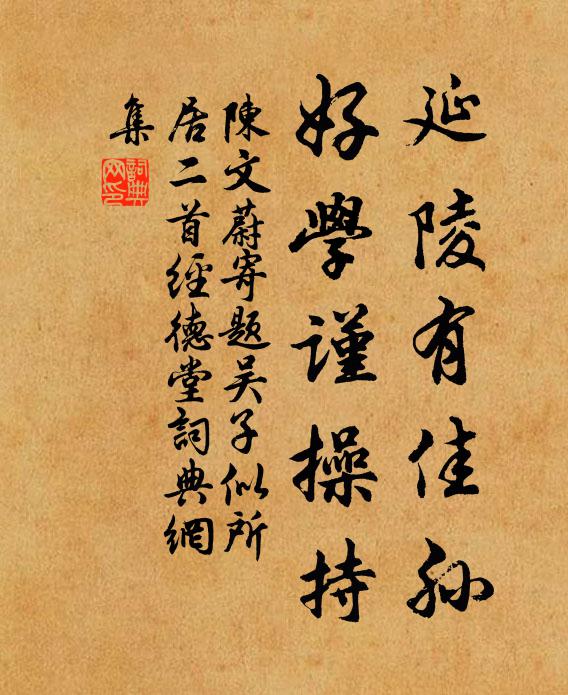 延陵有佳孫
好學謹操持
陳文蔚寄題吴子似所
居二首經德堂詞典網
集
詞典
网印